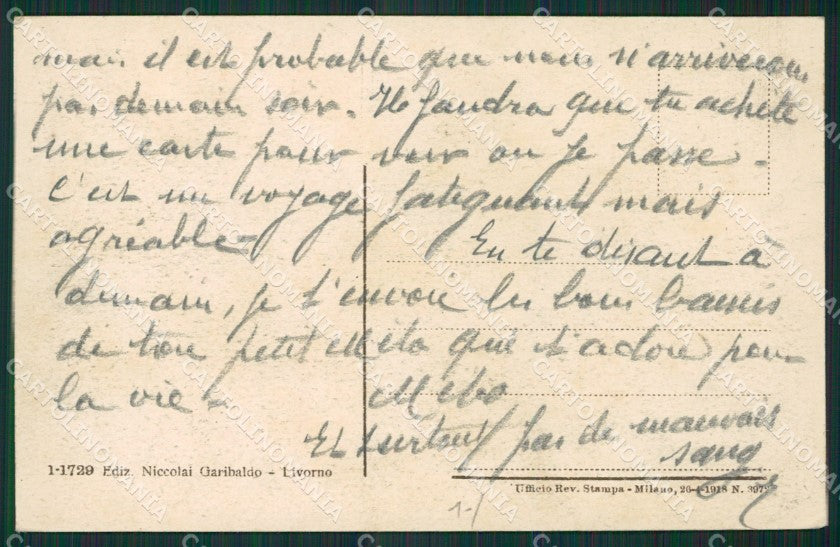 mais il est probable que nous n'arriverons
pas demain soir. Il faudra que tu achète
une carte pour voir où je passe -
C'est un voyage fatiguant mais
agréable -
En te disant à
demain, je t'envoie les bons baisers
de ton petit qui t'adore pour
la vie -
Et surtout pas de mauvais
sang
1-1729 Ediz. Niccolai Garibaldo - Livorno
Ufficio Rev. Stampa - Milano, 26-4-1918 N. 3972
1-/
CARTOLINOMANIA